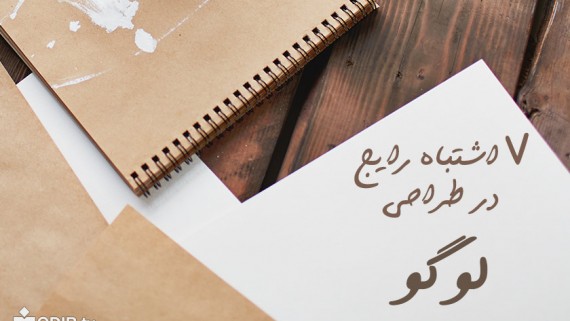 ۷ اشتباه رایج
در طراحی
لوگو